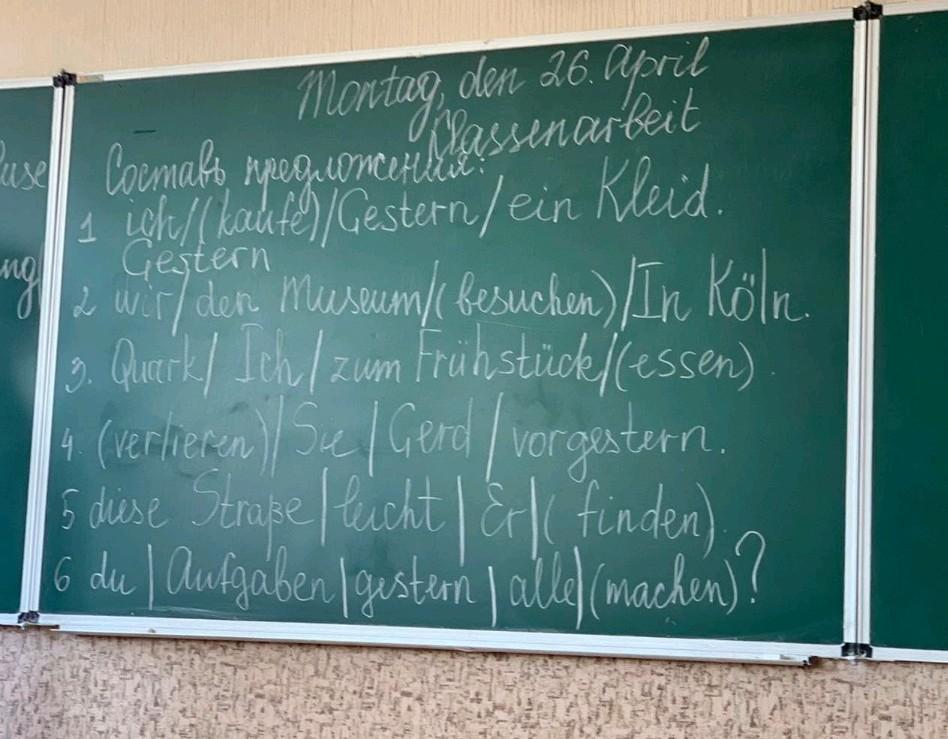 Montag, den 26. April
Klassenarbeit
Составь предложения:
1 ich/(kaufe)/Gestern/ein Kleid.
Gestern
2 wir/den Museum/(besuchen)/In Köln.
3. Quark/Ich/zum Frühstück/(essen).
4. (verlieren)/Sie/Gerd/vorgestern.
5 diese Straße/leicht/Er/(finden).
6 du/Aufgaben/gestern/alle/(machen)?